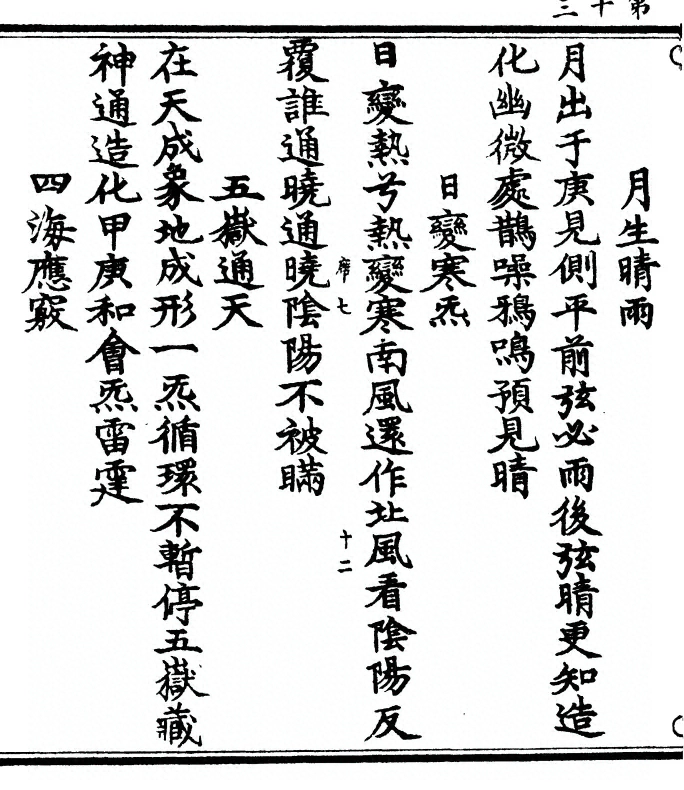 第十三
月生晴雨
月出于庚見側平前弦必雨後弦晴更知造
化幽微處鵲噪鴉鳴預見晴
日變寒炁
日變熱兮熱變寒南風還作北風看陰陽反
席七
十二
覆誰通曉通曉陰陽不被瞞
五嶽通天
在天成象地成形一炁循環不暫停五嶽藏
神通造化甲庚和會炁雷霆
四海應竅